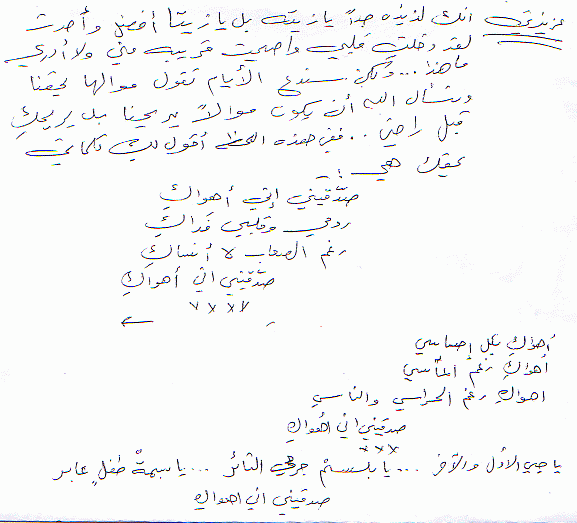 عزيزتي انك لذيذه جداً يازينه بل يا زينتنا أفضل وأحدث
لقد دخلت قلبي وأصبحت قريبه مني ولا أدري
ما هذا ... ولكن سندع الأيام تقول موالها بحقنا
ونسأل الله أن يكون موالاً يريحنا بل يريحكِ
قبل راحتي .. ففي هذه اللحظه أقول لكِ كلماتي
بحقك هي :-
صدّقيني إني أهواكِ
روحي وقلبي فداكِ
رغم الصعاب لا أنساكِ
صدّقيني اني أهواكِ
x x x x
←
أهواكِ بكل إحساسي
أهواكِ رغم المآسي
اهواكِ رغم الحراسي والناسي
صدقيني اني اهواكِ
x x x
يا حبي الأول والآخر ... يا بلسم جرحي الثائر ... يا بسمة طفلٍ عابر
صدقيني اني اهواكِ